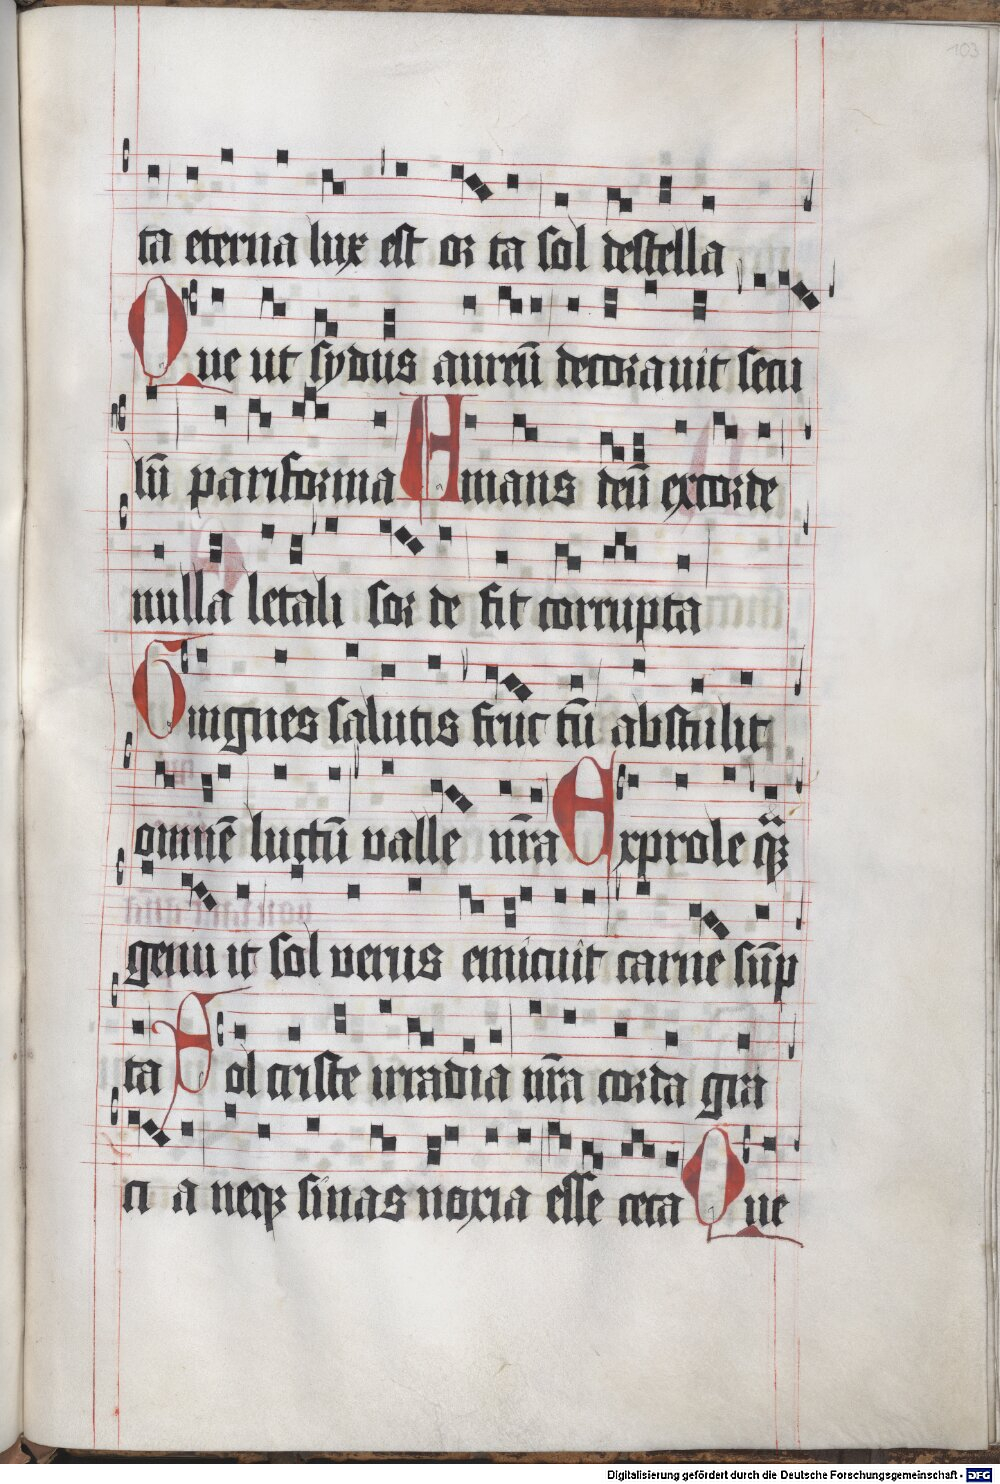 103
ta eterna lux est or ta sol destella
Que ut sydus aureū decorauit secu
lū pariforma Amans deū excorde
nulla letali sor de fit corrupta
Gingnes salutis fruc tū abstulit
omnē luctū valle nr̄a Exprole qz̄
genu it sol verus emicuit carnē sūp
ta Sol criste irradia nr̄a corda gra
ci a neqz sinas noxia esse ceca Que
Digitalisierung gefördert durch die Deutsche Forschungsgemeinschaft - DFG